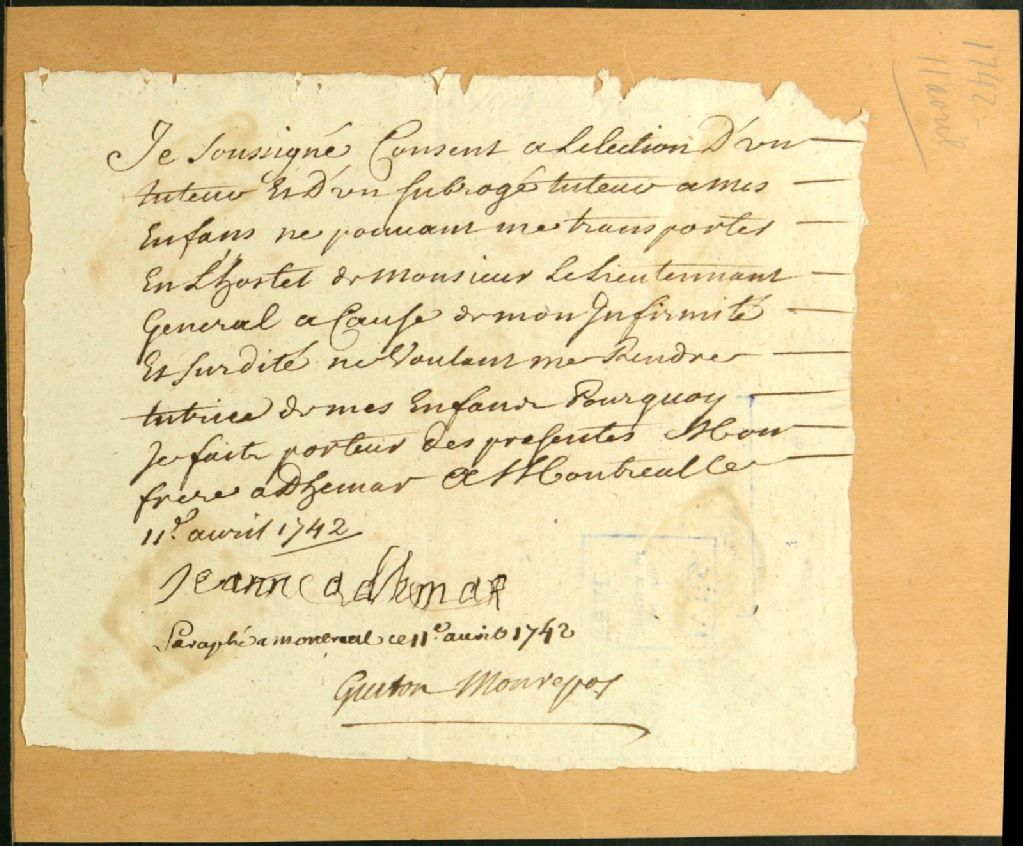 Je Soussigné Consent a Lelection D'un
tuteur Et D'un subrogé tuteur a mes
Enfans ne pouvant me transporter
En L'hostel de Monsieur Le Lieutennant
General a Cause de mon Infirmité
Et surdité ne Voulant me Rendre
tutrice de mes Enfans Pourquoy
Je fait porteur des presentes Mon
frere adhemar A Montrealle
11e avril 1742
Jeanne adhemar
Paraphé a montreal ce 11e avril 1742
Guiton Monrepos
1742 -
11 avril